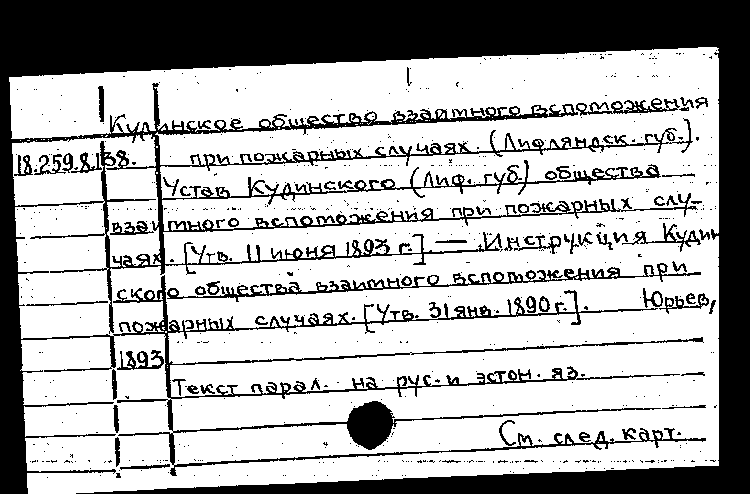 Кудинское общество взаимного вспоможения
18.259.8.138. при пожарных случаях. (Лифляндск. губ.).
Устав Кудинского (Лиф. губ) общества
взаимного вспоможения при пожарных слу-
чаях. [Утв. 11 июня 1893 г.] — Инструкция Кудин
ского общества взаимного вспоможения при
пожарных случаях. [Утв. 31 янв. 1890 г.]. Юрьев,
1893
Текст парал. на рус. и эстон. яз.
См. след. карт.